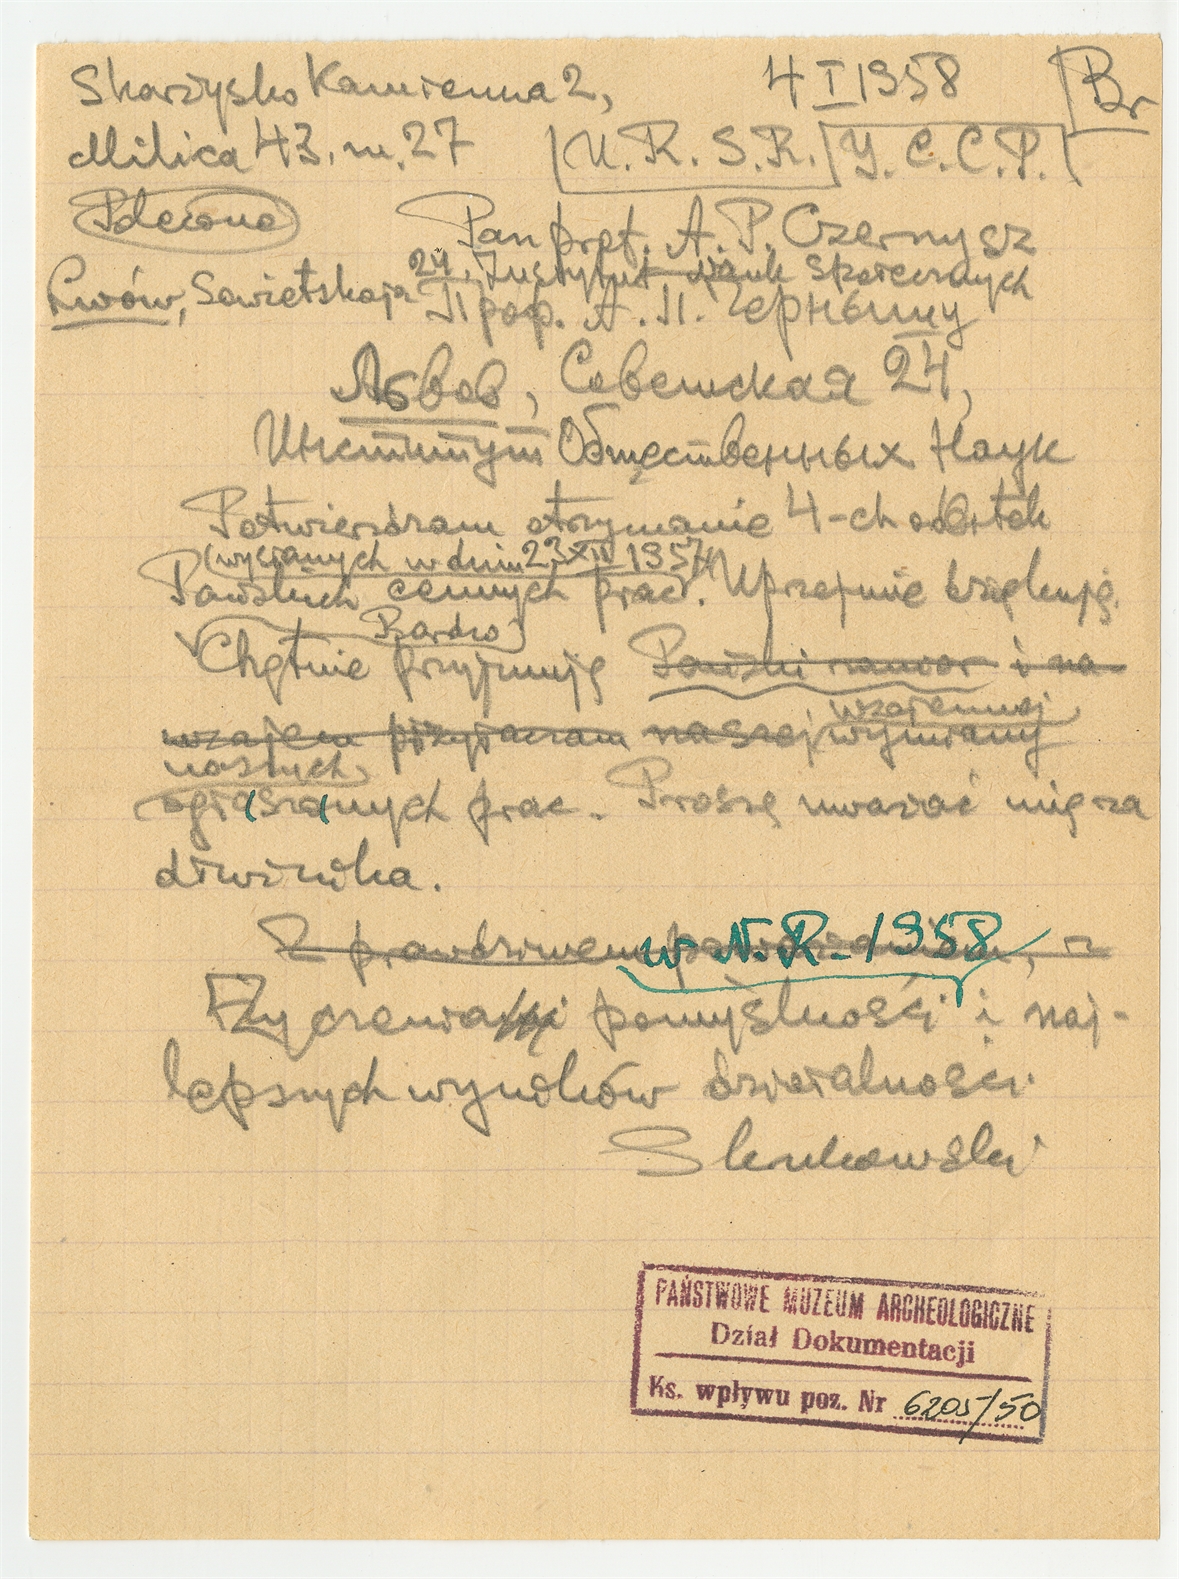 Skarżysko Kamienna 2, 4 I 1958 Br
Milica 43. m. 27 U. R. S. R. У. С. С. Р.
Polecone
Pan prof. A. P. Czernysz
Lwów, Sowietskaja 24, Instytut Nauk Społecznych
Проф. А. П. Чернышу
Львов, Советская 24,
Институт Общественных Наук
Potwierdzam otrzymanie 4-ch odbitek
(wysłanych w dniu 23 XII 1957)
Pańskich cennych prac. Uprzejmie dziękuję.
Bardzo
Chętnie przyjmuję Pański zamiar i na-
wzajemnej
wzajem naszej wymiany
naszych
ogłaszanych prac. Proszę uważać mię za
dłużnika.
Z prawdziwem w N. R. 1958, z
Życzenia pomyślności i naj-
lepszych wyników działalności
SKrukowski
PAŃSTWOWE MUZEUM ARCHEOLOGICZNE
Dział Dokumentacji
Ks. wpływu poz. Nr 6205/50